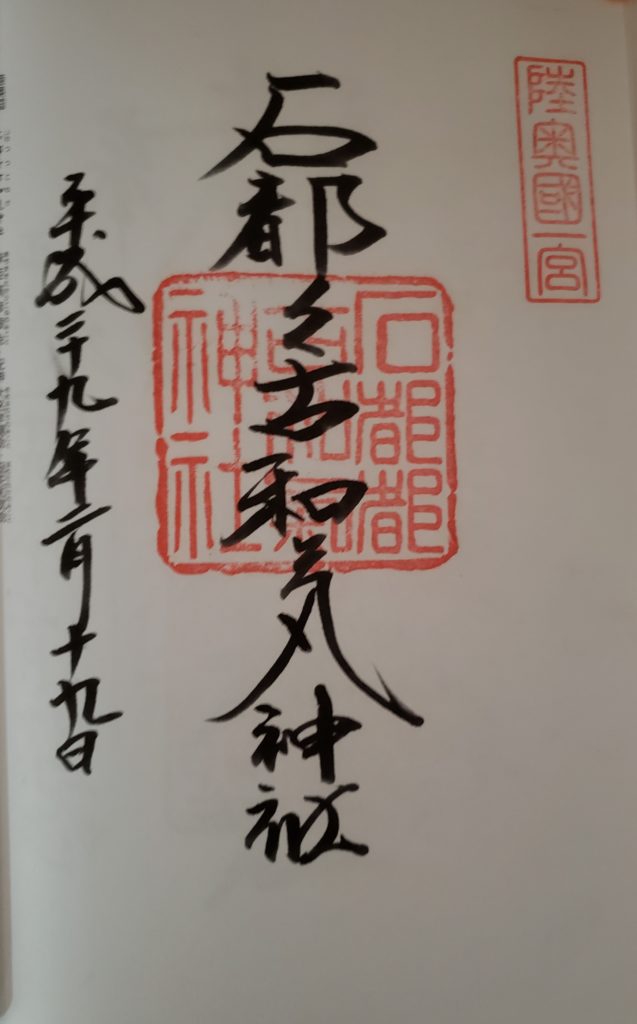 陸奥國一宮
石都々古和気神社
石都都
古和氣
神社
平成二十九年二月十九日